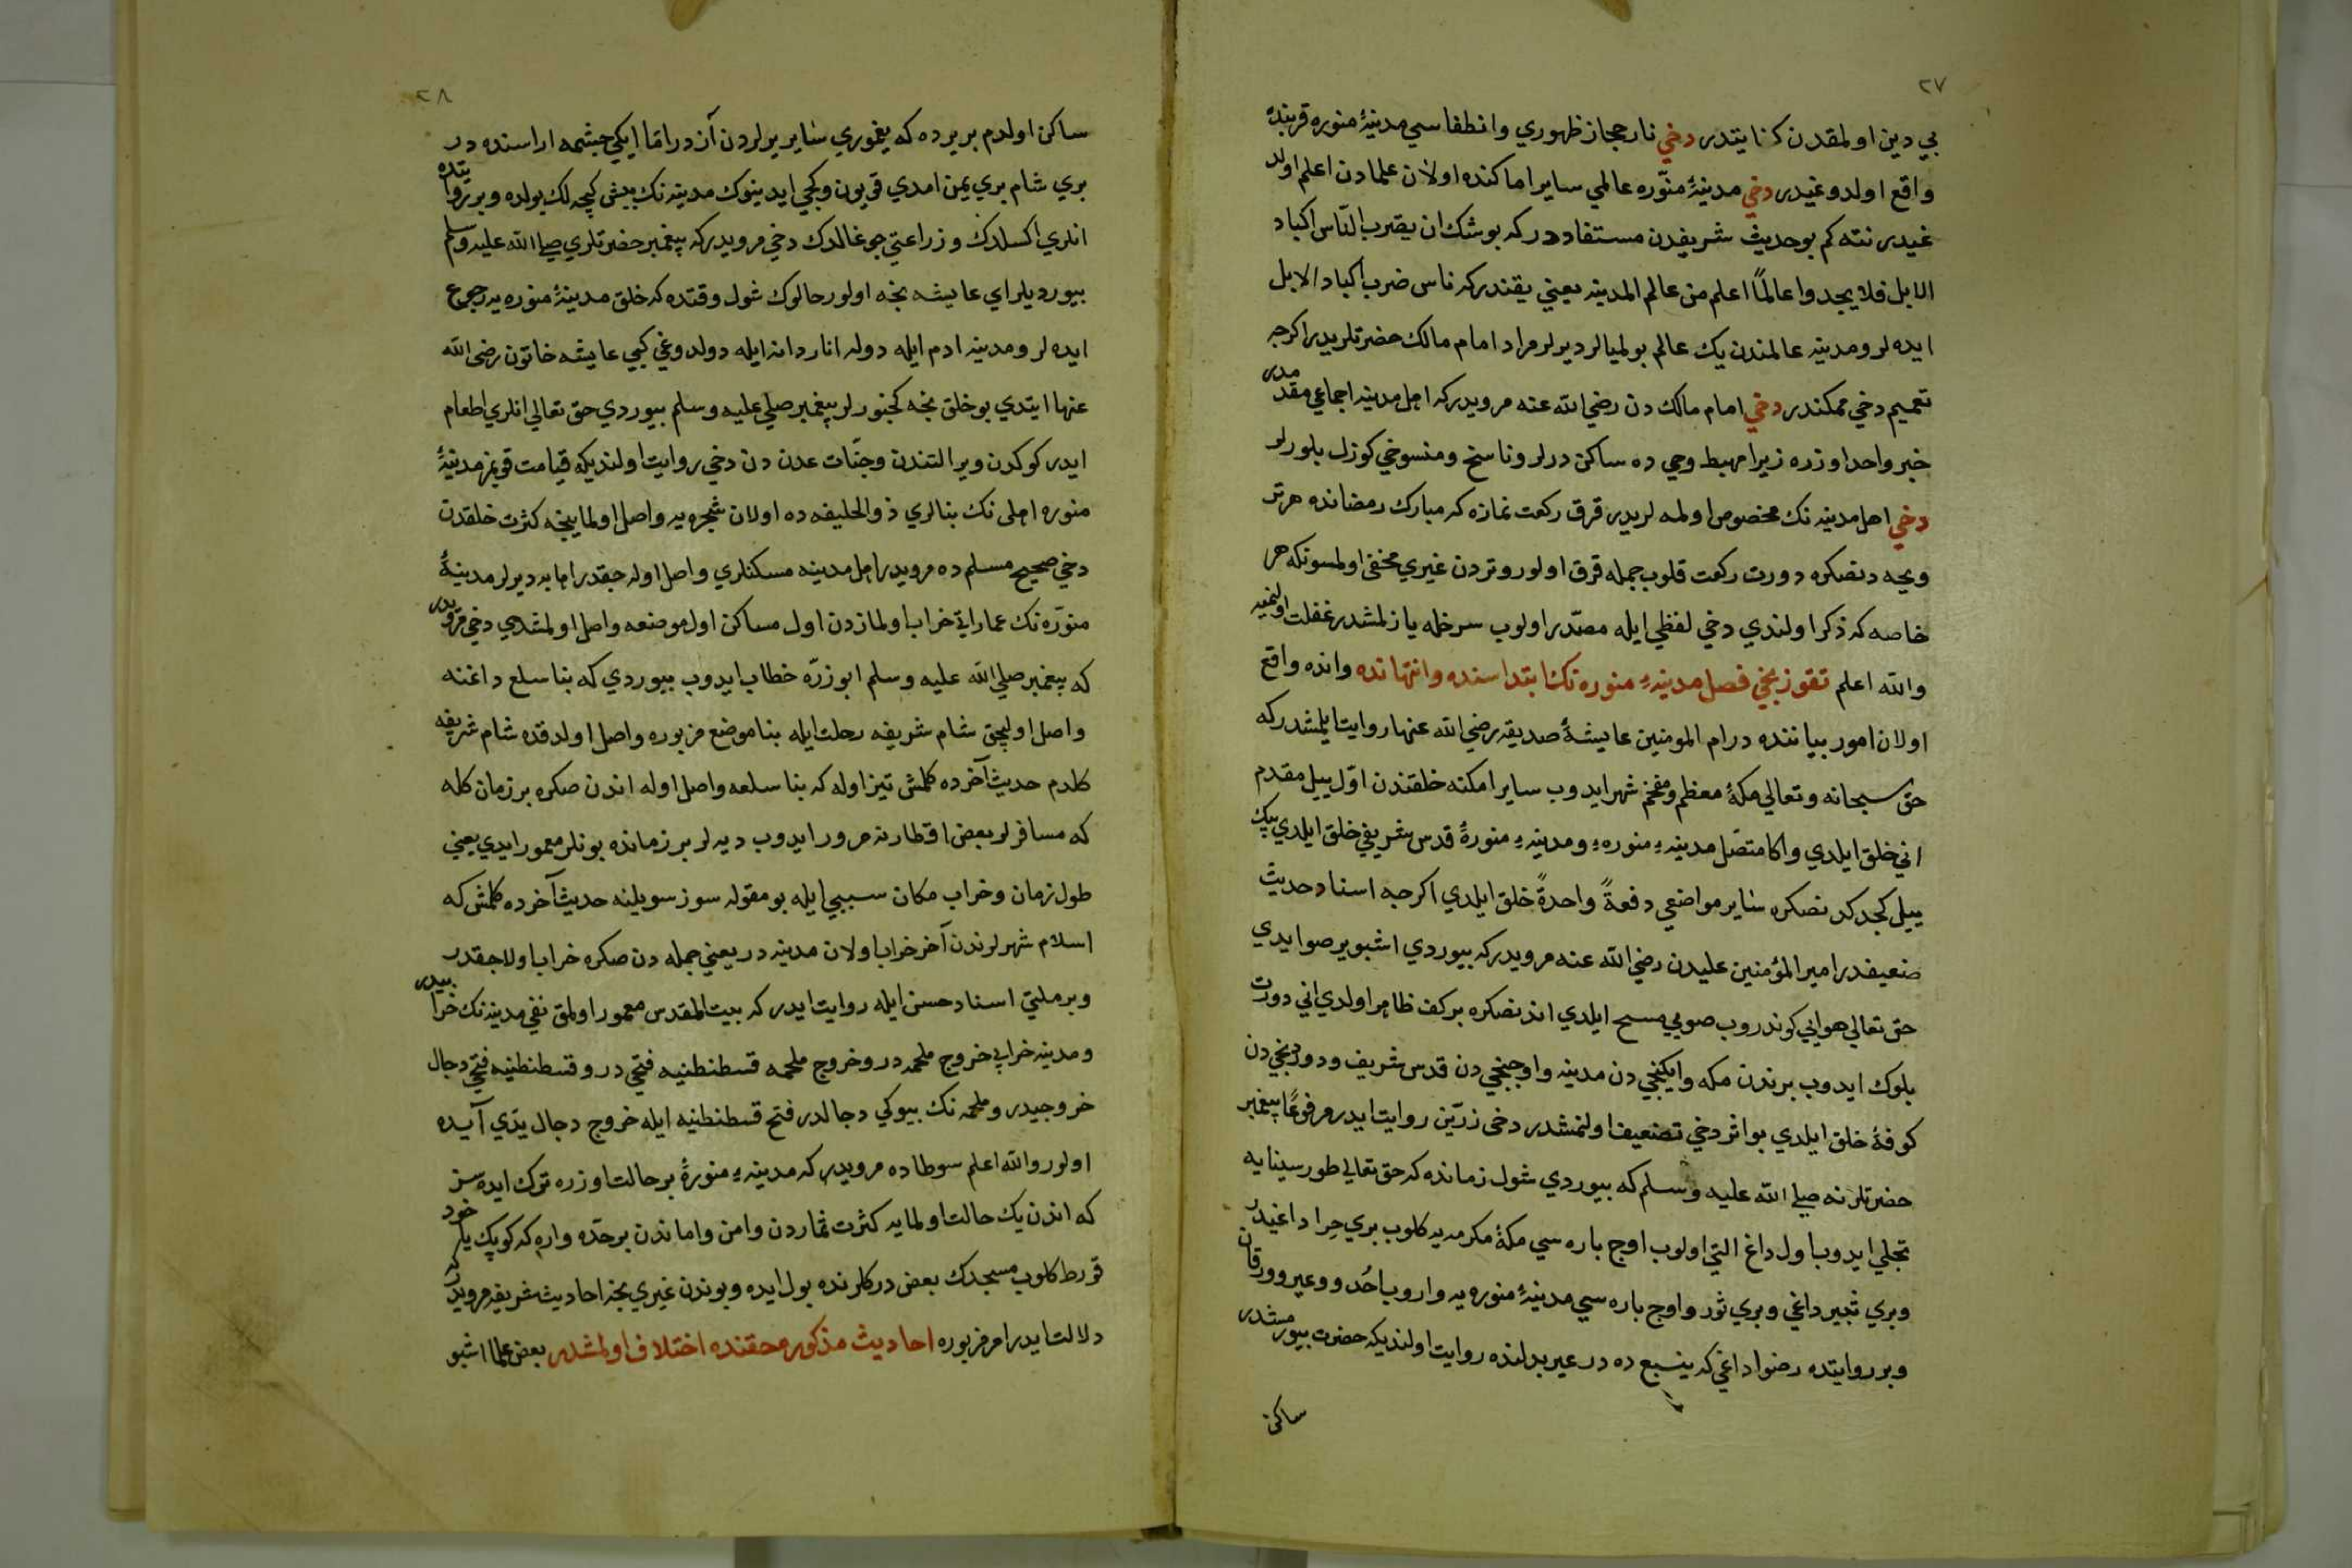 ٢٧
بي دين اولمقدن كنايتدر دخي نار حجاز ظهوري وانطفاسي مدينۀ منوره قربنده
واقع اولدوغيدر دخي مدينۀ منوّره عالمي ساير اماكنده اولان علمادن اعلم اولد
غيدر نته كم بو حديث شريفدن مستفاددر كه يوشك ان يضرب النّاس اكباد
الابل فلا يجدوا عالمًا اعلم من عالم المدينه يعني يقندركه ناس ضرب اكباد الابل
ايده لر ومدينه عالمندن يك عالم بولميالر ديرلر مراد امام مالك حضرتلريدر اكرچه
تعميم دخي ممكندر دخي امام مالك دن رضي الله عنه مرويدركه اهل مدينه اجماعي مقدمدر
خبر واحد اوزره زيرا مهبط وحي ده ساكن درلر وناسخ ومنسوخي كوزل بلورلر
دخي اهل مدينه نك مخصوص اولمه لريدر قرق ركعت نمازه كه مبارك رمضانده هر تر
ويحه دنصكره دورت ركعت قلوب جمله قرق اولور وتردن غيري مخفي اولمسونكه هر
خاصه كه ذكر اولندي دخي لفظي ايله مصدّر اولوب سرخله يازلمشدر غفلت اولنميه
والله اعلم تقوزنجي فصل مدينهء منوره نك ابتداسنده وانتهانده وانده واقع
اولان امور بياننده در ام المومنين عايشۀ صديقه رضي الله عنها روايت ايلمشدركه
حق سبحانه وتعالي مكۀ معظم ومفخم شهر ايدوب ساير امكنه خلقندن اوّل ييل مقدم
اني خلق ايلدي واكا متصل مدينهء منورهء ومدينهء منورۀ قدس شريفي خلق ايلدي بيك
ييل كجدكدنصكره ساير مواضعي دفعةً واحدةً خلق ايلدي اكرچه اسناد حديث
ضعيفدر امير المؤمنين عليدن رضي الله عنه مرويدركه بيوردي اشبو ير صوايدي
حق تعالي هوايي كوندروب صويي مسح ايلدي اندنصكره بر كف ظاهر اولدي اني دورت
بلوك ايدوب برندن مكه وايكنجي دن مدينه واوجنجي دن قدس شريف ودوردنجي دن
كوفۀ خلق ايلدي بو اثر دخي تضعيف اولنمشدر دخي زرّين روايت ايدر مرفوعًا پيغمبر
حضرتلرنه صلي الله عليه وسلم كه بيوردي شول زمانده كه حق تعالي طور سينايه
تجلي ايدوب اول داغ التي اولوب اوچ باره سي مكۀ مكرمه يه كلوب بري حِرا داغيدر
وبري ثبير داغي وبري ثور واوچ باره سي مدينۀ منوره يه واروب اُحُد ووعير وورقان
وبر روايتده رضوا داغي كه ينبع ده در عير بدلنده روايت اولنديكه حضرت بيورمشدر
ساكن
٢٨
ساكن اولدم بر يرده كه يغموري ساير يرلردن آزدر امّا ايكي چشمه اراسنده در
بري شام بري يمن امدي قويون وكچي ايدينوك مدينه نك بيش كيچه لك يولده وبر روايتده
انلري اكسلدك وزراعتي چوغالدك دخي مرويدركه پيغمبر حضرتلري صلي الله عليه وسلم
بيورديلر اي عايشه نجه اولور حالوك شول وقتده كه خلق مدينۀ منوره يه رجوع
ايده لر ومدينه ادم ايله دوله انار دانه ايله دولدوغي كبي عايشه خاتون رضي الله
عنها ايتدي بو خلق نجه كچنورلر پيغمبر صلي عليه وسلم بيوردي حق تعالي انلري اطعام
ايدر كوكدن وير التندن وجنّات عدن دن دخي روايت اولنديكه قيامت قوپمز مدينۀ
منوره اهلي نك بنالري ذو الحليفه ده اولان شجره يه واصل اولماينجه كثرت خلقدن
دخي صحيح مسلم ده مرويدر اهل مدينه مسكنلري واصل اوله جقدر اهابه ديرلر مدينۀ
منوّره نك عماراتي خراب اولمازدن اول مساكن اول موضعه واصل اولمشدي دخي مرويدر
كه پيغمبر صلي الله عليه وسلم ابو زرّه خطاب ايدوب بيوردي كه بنا سلع داغنه
واصل اوليجق شام شريفه رحلت ايله بنا موضع مزبوره واصل اولدقده شام شريفه
كلدم حديث آخرده كلمش تيز اوله كه بنا سلعه واصل اوله اندن صكره بر زمان كله
كه مسافرلر بعض اقطارنه مرور ايدوب ديه لر بر زمانده بونلر معمور ايدي يعني
طول زمان وخراب مكان سببي ايله بو مقوله سوز سويلنه حديث آخرده كلمش كه
اسلام شهرلرندن آخر خراب اولان مدينه در يعني جمله دن صكره خراب اولاجقدر
وبرملتي اسناد حسن ايله روايت ايدر كه بيت المقدس معمور اولمق نفي مدينه نك خرابيدر
ومدينه خرابي خروج ملحمه در وخروج ملحمه قسطنطنيه فتحي در وقسطنطنيه فتحي دجال
خروجيدر وملحمه نك بيوكي دجالدر فتح قسطنطنيه ايله خروج دجال يدّي آيده
اولور والله اعلم سوطاده مرويدر كه مدينهء منورۀ بر حالت اوزره ترك ايده سز
كه اندن يك حالت اولمايه كثرت ثماردن وامن واماندن بر حدّه واره كه كوپك ياخود
قورط كلوب مسجدك بعض دركلرنده بول ايده وبوندن غيري نجه احاديث شريفه مرويدركه
دلالت ايدر امر مزبوره احاديث مذكوره حقنده اختلاف اولمشدر بعض علما اشبو